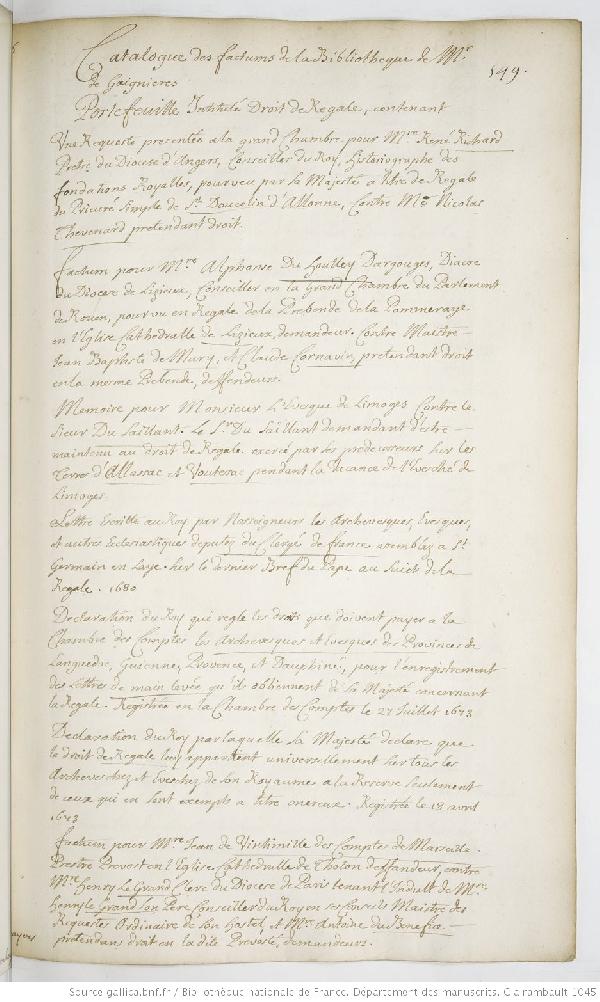 Catalogue des factums de la Bibliotheque de Mr
de Gaignieres
149.
Portefeuille Intitulé Droit de Regale, contenant
Une Requeste presentée a la grand Chambre pour Mre René Richard
Pretre du Diocese d'Angers, Conseiller du Roy, Historiographe des
fondations Royalles, pourveu par sa Majesté a titre de Regale
du Prieuré simple de St Doucelin d'Allonne, Contre Me Nicolas
Thevenard pretendant droit.
factum pour Mre Alphonse Du Houlley Dargouges, Diacre
du Diocese de Lizieux, Conseiller en la Grand Chambre du Parlement
de Rouen, pourvu en Regale de la Prebende de la Pommeraye
en l'Eglise Cathedralle de Lizieux, demandeur. Contre Maistre
Jean Baptiste de Mury, et Claude Cornavin, pretendant droit
en la mesme Prebende, deffendeurs.
Memoire pour Monsieur L'Evesque de Limoges Contre le
Sieur Du Saillant. Le Sr Du Saillant demandant d'estre
maintenu au droit de Regale exercé par ses predecesseurs sur les
Terres d'Allassac et Voutesac pendant la Vacance de l'Evesché de
Limoges.
Lettre Escritte au Roy par Nosseigneurs les Archevesques, Evesques,
et autres Eclesiastiques deputez du Clergé de france assemblez a St
Germain en Laye. sur le dernier Bref du Pape au Suiets de la
Regale. 1680
Declaration du Roy qui regle les droits que doivent payer a la
Chambre des Comptes les Archevesques et Evesques des Provinces de
Languedoc, Guienne, Provence, et Dauphiné, pour l'enregistrement
des Lettres de main levée qu'ils obtiennent de sa Majesté concernant
la Regale. Registrée en la Chambre des Comptes le 27 Juillet 1673
Declaration du Roy par laquelle sa Majesté declare que
le droit de Regale luy appartient universellement sur tous les
Archeveschez et Eveschez de son Royaume a la Reserve seulement
de ceux qui en sont exempts a titre onereux. Registrée le 18 avril
1673
factum pour Mre Jean de Vintimille des Comptes de Marseille
Prestre Prevost en l'Eglise Cathedralle de Tholon deffandeur, contre
Mre Henry Le Grand Clerc du Diocese de Paris tenant l'Indult de Mre
Henry le Grand son Pere Conseiller du Roy en ses Conseils Maistre des
Requestes Ordinaire de son Hostel, et Mre Antoine du Benefice
pretendans droit en la dite Prevosté, demandeurs.
Source gallica.bnf.fr / Bibliothèque nationale de France. Département des manuscrits. Clairambault 1045